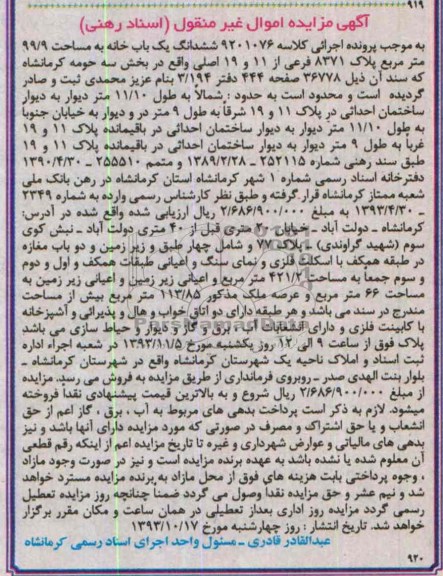 ۹۱۹
آگهی مزایده اموال غیر منقول (اسناد رهنی)
به موجب پرونده اجرائی کلاسه ۹۲۰۱۰۷۶ ششدانگ یک باب خانه به مساحت ۹۹/۹
متر مربع پلاک ۸۳۷۱ فرعی از ۱۱ و ۱۹ اصلی واقع در بخش سه حومه کرمانشاه
که سند آن ذیل ۳۶۷۷۸ صفحه ۴۴۴ دفتر ۳/۱۹۴ بنام عزیز محمدی ثبت و صادر
گردیده است و محدود است به حدود : شمالاً به طول ۱۱/۱۰ متر دیوار به دیوار
ساختمان احداثی در پلاک ۱۱ و ۱۹ شرقاً به طول ۹ متر در و دیوار به خیابان جنوبا
به طول ۱۱/۱۰ متر دیوار به دیوار ساختمان احداثی در باقیمانده پلاک ۱۱ و ۱۹
غرباً به طول ۹ متر دیوار به دیوار ساختمان احداثی در باقیمانده پلاک ۱۱ و ۱۹
طبق سند رهنی شماره ۲۵۲۱۱۵ ـ ۱۳۸۹/۲/۲۸ و متمم ۲۵۵۵۱۰ ـ ۱۳۹۰/۴/۳۰
دفترخانه اسناد رسمی شماره ۱ شهر کرمانشاه استان کرمانشاه در رهن بانک ملی
شعبه ممتاز کرمانشاه قرار گرفته و طبق نظر کارشناس رسمی وارده به شماره ۲۳۴۹
ـ ۱۳۹۳/۴/۳۰ به مبلغ ۲/۶۸۶/۹۰۰/۰۰۰ ریال ارزیابی شده واقع شده در آدرس:
کرمانشاه ـ دولت آباد ـ خیابان ۲۰ متری قبل از ۴۰ متری دولت آباد ـ نبش کوی
سوم (شهید گراوندی) ـ پلاک ۷۷ و شامل چهار طبق و زیر زمین و دو باب مغازه
در طبقه همکف با اسکلت فلزی و نمای سنگ و اعیانی طبقات همکف و اول و دوم
و سوم جمعاً به مساحت ۴۲۱/۲ متر مربع و اعیانی زیر زمین و اعیانی زیر زمین به
مساحت ۶۶ متر مربع و عرصه ملک مذکور ۱۱۳/۸۵ متر مربع بیش از مساحت
مندرج در سند می باشد و هر طبقه دارای دو اتاق خواب و هال و پذیرائی و آشپزخانه
با کابینت فلزی و دارای انشعابات آب و برق و گاز و کولر و حیاط سازی می باشد
پلاک فوق از ساعت ۹ الی ۱۲ روز یکشنبه مورخ ۱۳۹۳/۱۱/۵ در شعبه اجراء اداره
ثبت اسناد و املاک ناحیه یک شهرستان کرمانشاه واقع در شهرستان کرمانشاه ـ
بلوار بنت الهدی صدر ـ روبروی فرمانداری از طریق مزایده به فروش می رسد. مزایده
از مبلغ ۲/۶۸۶/۹۰۰/۰۰۰ ریال شروع و به بالاترین قیمت پیشنهادی نقدا فروخته
میشود. لازم به ذکر است پرداخت بدهی های مربوط به آب ، برق ، گاز اعم از حق
انشعاب و یا حق اشتراک و مصرف در صورتی که مورد مزایده دارای آنها باشد و نیز
بدهی های مالیاتی و عوارض شهرداری و غیره تا تاریخ مزایده اعم از اینکه رقم قطعی
آن معلوم شده یا نشده باشد به عهده برنده مزایده است و نیز در صورت وجود مازاد
، وجوه پرداختی بابت هزینه های فوق از محل مازاد به برنده مزایده مسترد خواهد
شد و نیم عشر و حق مزایده نقدا وصول می گردد ضمنا چنانچه روز مزایده تعطیل
رسمی گردد مزایده روز اداری بعداز تعطیلی در همان ساعت و مکان مقرر برگزار
خواهد شد. تاریخ انتشار : روز چهارشنبه مورخ ۱۳۹۳/۱۰/۱۷
عبدالقادر قادری ـ مسئول واحد اجرای اسناد رسمی کرمانشاه
۹۲۰